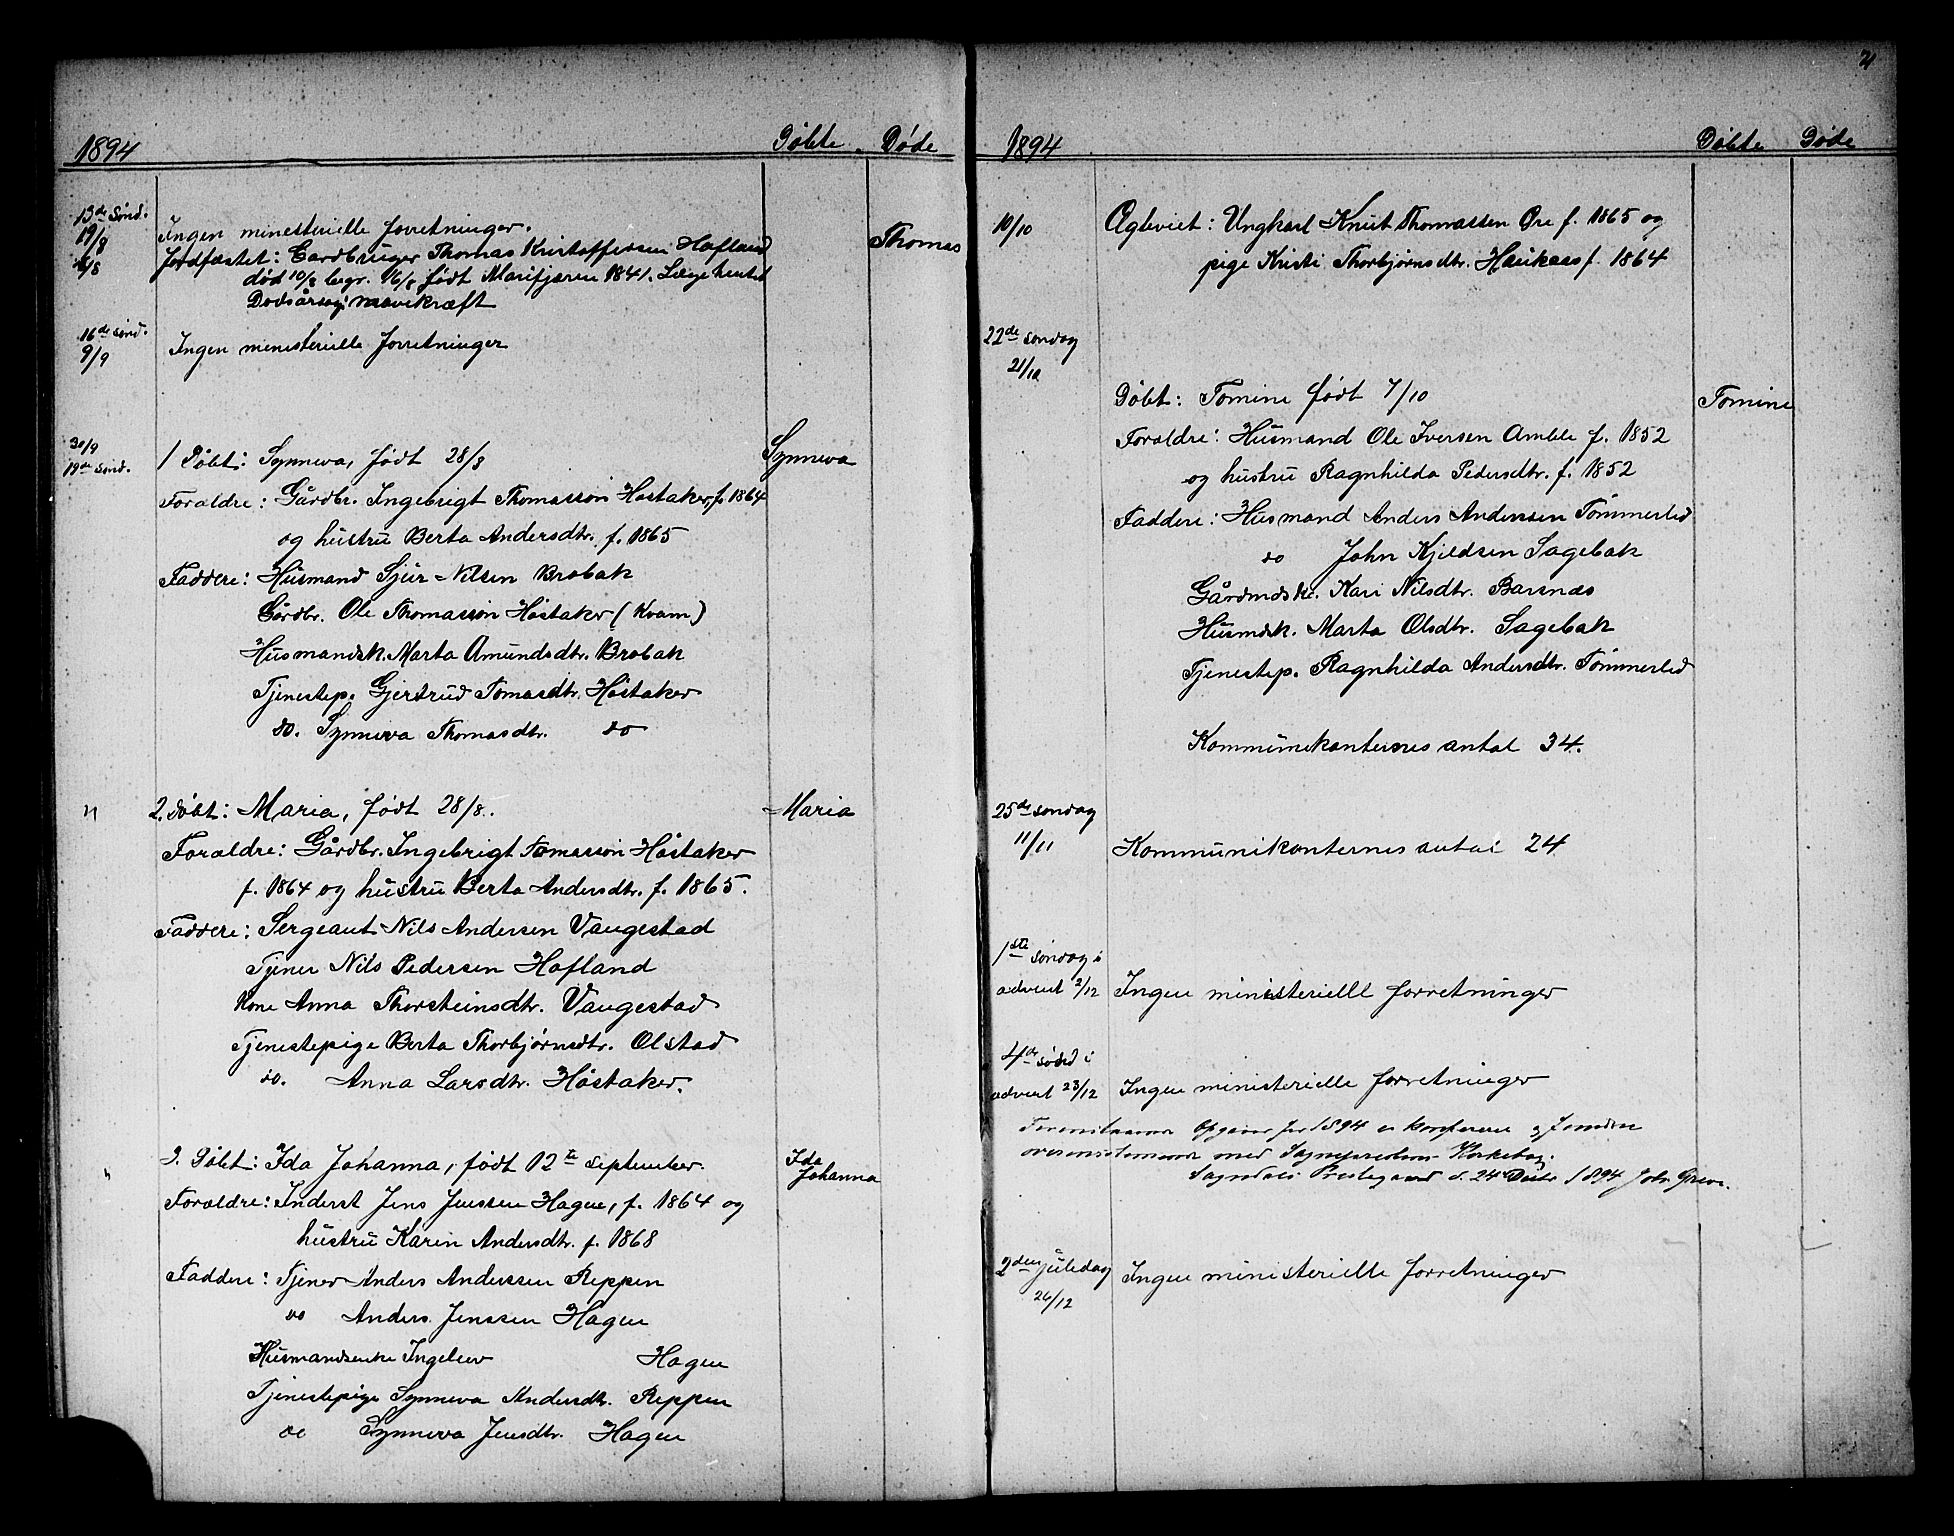 1894 Døbte. Døde
13de Sønd.
19/8 Ingen ministerielle forretninger.
16/8 Jordfæstet: Gardbruger Thomas Kristoffersen Hafland Thomas
død 10/8 begr. 16/8 født Marifjæren 1841. Læge hentet
Dødsårsag: mavekræft
16de sønd.
9/9 Ingen ministerielle forretninger
30/9
19de sønd. 1 Døbt: Synneva, født 28/8 Synneva
Foraldre: Gårdbr. Ingebrigt Thomasson Høstaker, f. 1864
og hustru Berta Andersdtr. f. 1865
Faddere: Husmand Sjur Nilsen Brobak
Gårdbr. Ole Thomasson Høstaker (Kvam)
Husmandsk. Marta Amundsdtr. Brobak
Tjenestep. Gjertrud Tomasdtr. Høstaker
do. Synneva Thomasdtr. do
" 2. Døbt: Maria, født 28/8. Maria
Foraldre: Gårdbr. Ingebrigt Tomasson Høstaker
f. 1864 og hustru Berta Andersdtr. f. 1865.
Faddere: Sergeant Nils Andersen Vangestad
Tjener Nils Pedersen Hafland
Kone Anna Thorsteinsdtr. Vangestad
Tjenestepige Berta Thorbjørnsdtr. Olstad
do. Anna Larsdtr. Høstaker.
" 3. Døbt: Ida Johanna, født 12te september. Ida Johanna
Foraldre: Inderst Jens Jenssen Hagen, f. 1864 og
hustru Karin Andersdtr. f. 1868
Faddere: Tjener Anders Anderssen Reppen
do Anders Jenssen Hagen
Husmandsenke Ingeleiv Hagen
Tjenestepige Synneva Andersdtr. Reppen
do Synneva Jensdtr. Hagen
21
1894 Døbte Døde
10/10 Ægteviet: Ungkarl Knut Thomassen Øre f. 1865 og
pige Kristi Thorbjørnsdtr. Haukaas f. 1864
22de søndag
21/10
Døbt: Tomine født 7/10 Tomine
Foraldre: Husmand Ole Iversen Amble f. 1852
og hustru Ragnhilda Pedersdtr. f. 1852
Faddere: Husmand Anders Anderssen Tømmerlid
do John Kjeldsen Sagebak
Gårdmdsk. Kari Nilsdtr. Barsnæs
Husmdsk. Marta Olsdtr. Sagebak
Tjenestep. Ragnhilda Andersdtr. Tømmerlid
Kommunikanternes antal 34.
25de søndag
11/11 Kommunikanternes antal 24
1ste søndag i
advent 2/12 Ingen ministerielle forretninger
4de sønd i
advent 23/12 Ingen ministerielle forretninger
Opgaver for 1894 er konfereret og funden
overensstemmende med Sognepræstens Kirkebog.
Sogndals Prestegaard d. 24 Decbr 1894 Joh. Greve.
2den juledag
26/12 Ingen ministerielle forretninger